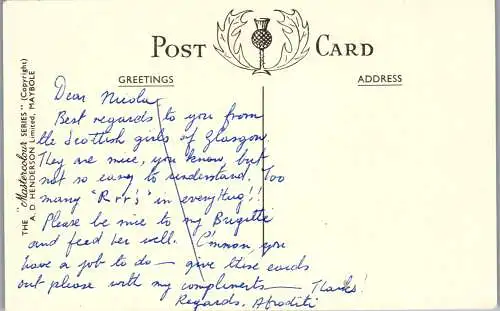 POST CARD
GREETINGS
ADDRESS
THE "Mastercolour SERIES" (Copyright)
A. D. HENDERSON Limited, MAYBOLE
Dear Nicola
Best regards to you from
the Scottish girls of Glasgow.
They are nice, you know, but
not so easy to understand. Too
many "R r r's" in everything!!
Please be nice to my Brigitte
and feed her well. C'mmon, you
have a job to do — give these cards
out please with my compliments — Thanks!
Regards, Afroditi